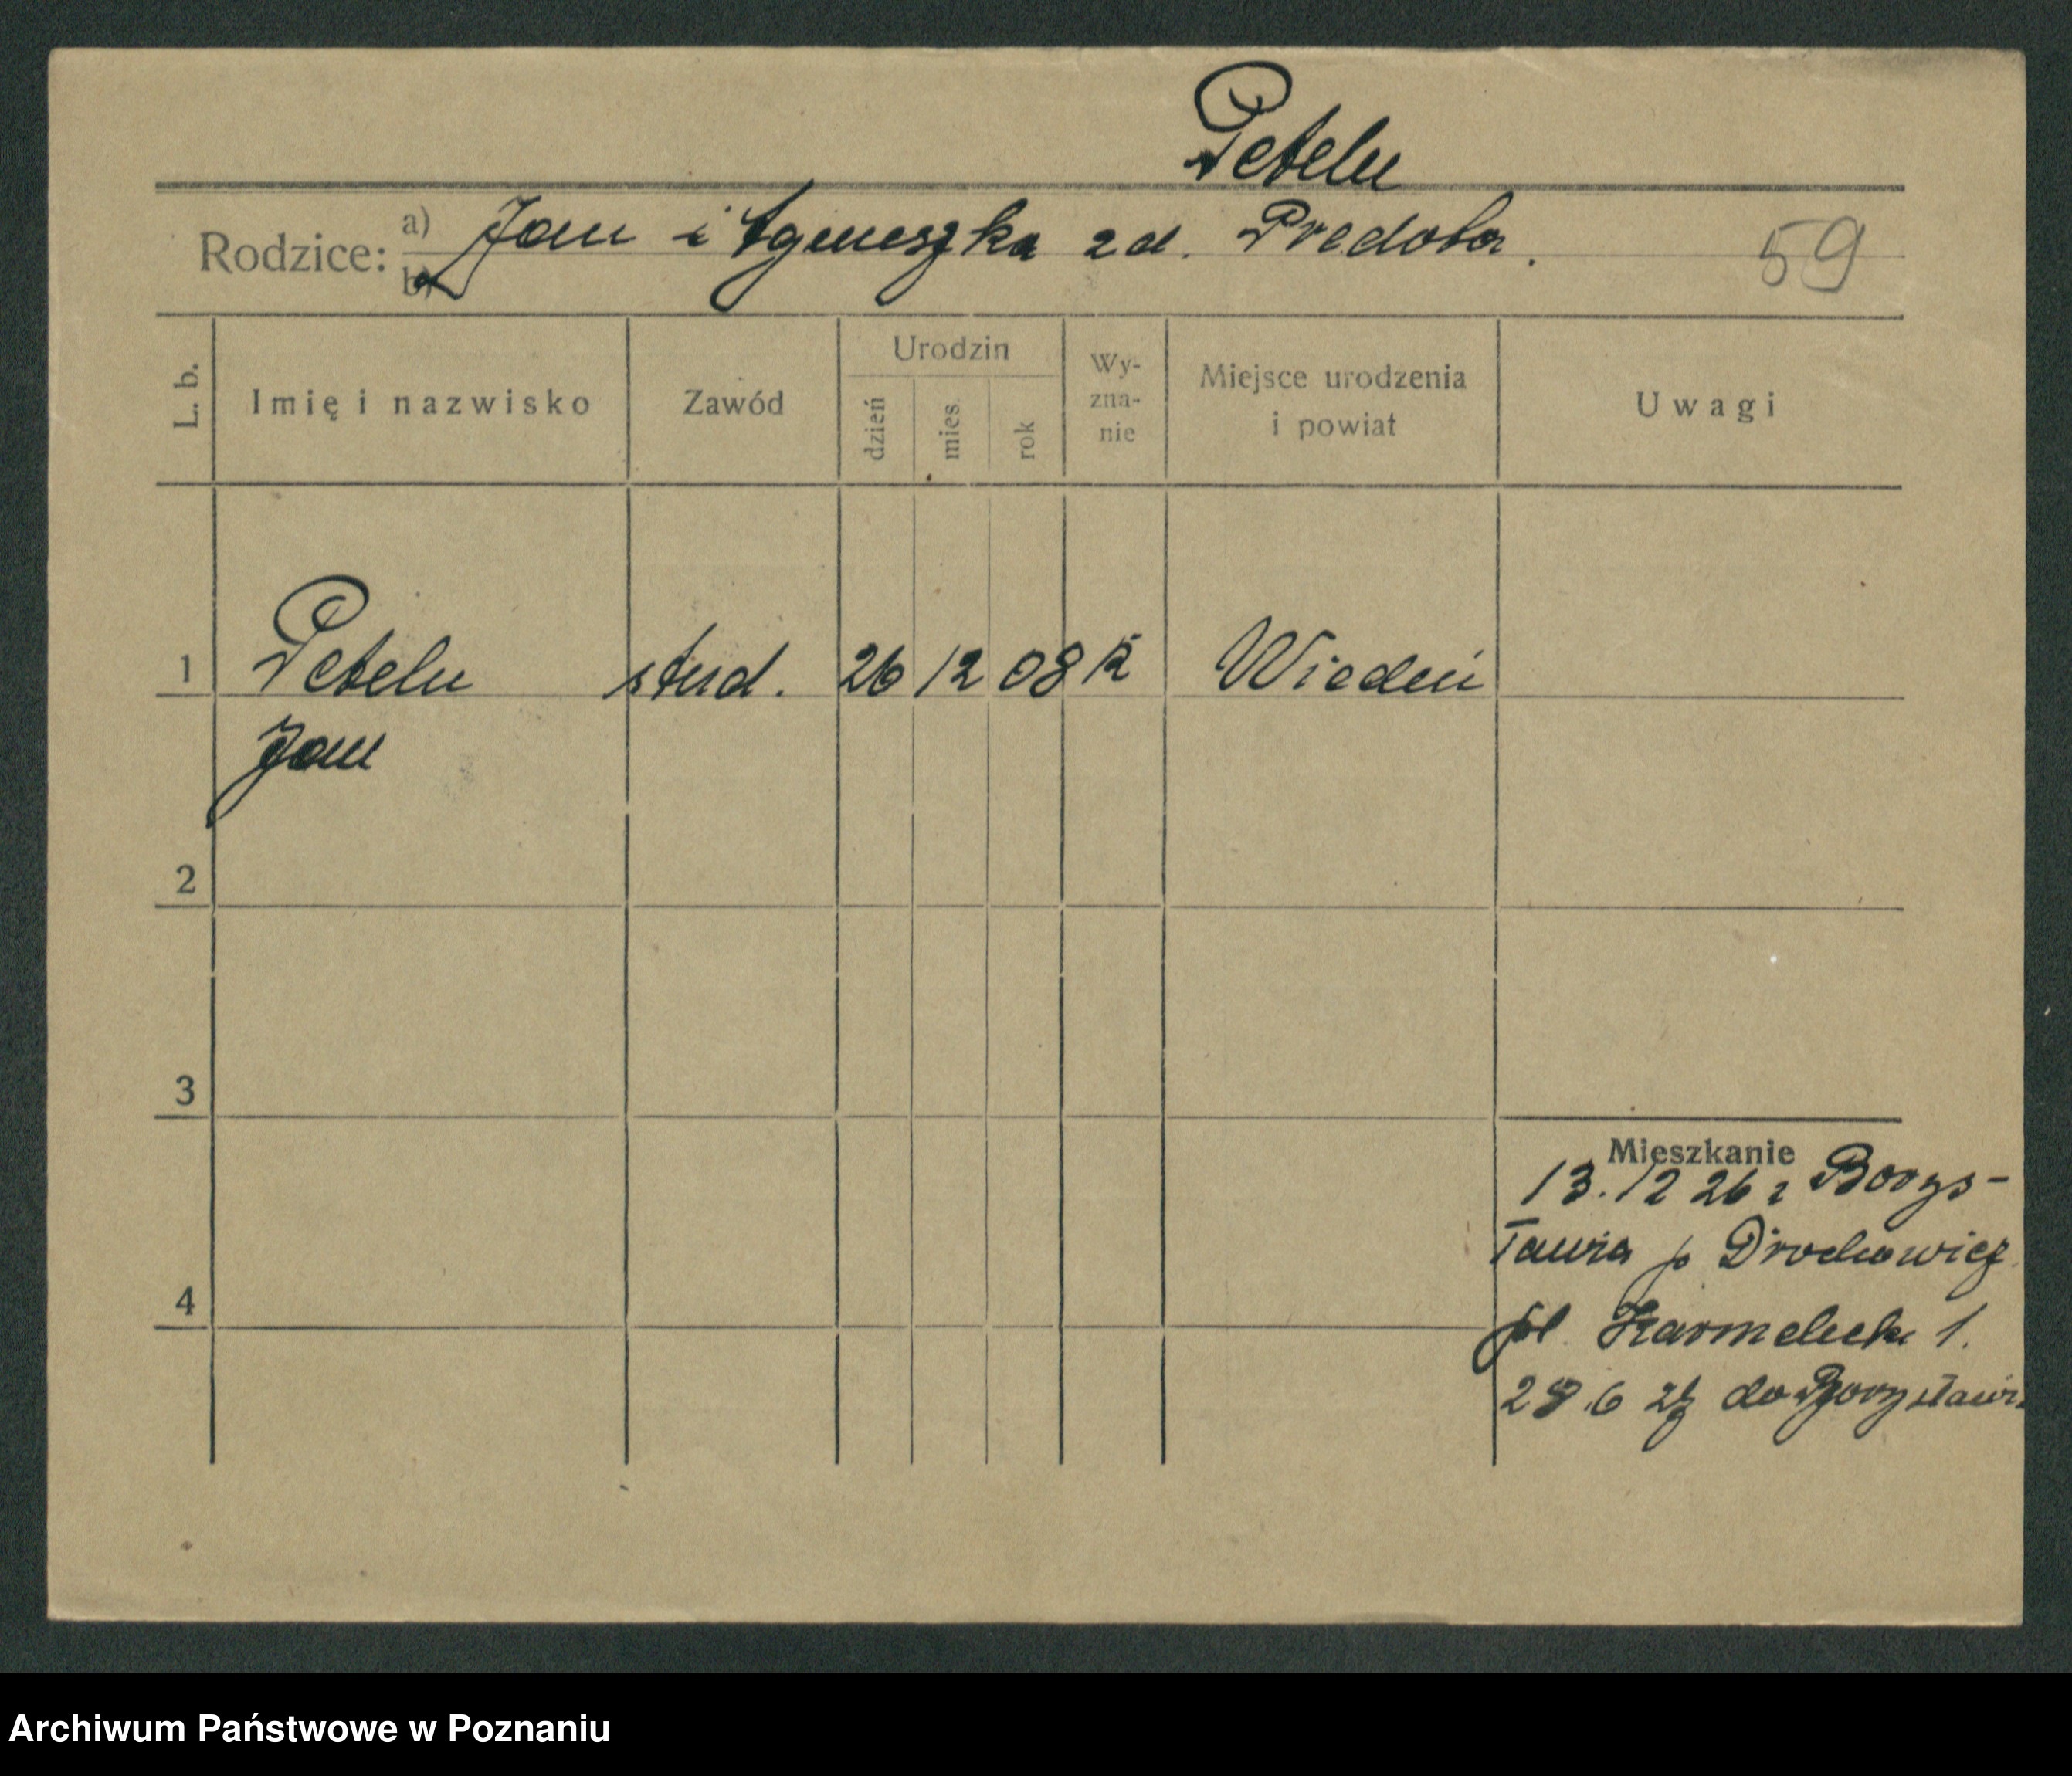 Petelu
Rodzice: a) Jan i Agnieszka zd. Predota.
b)
59
L. b.
Imię i nazwisko
Zawód
Urodzin
dzień
mies.
rok
Wy-
zna-
nie
Miejsce urodzenia
i powiat
Uwagi
1 Petelu stud. 26 12 08 Wiedeń
Jan
2
3
4
Mieszkanie
13.12 26 z Borys-
ławia p
pl. Karmelicki 1.
28.6 do Borysławia
Archiwum Państwowe w Poznaniu